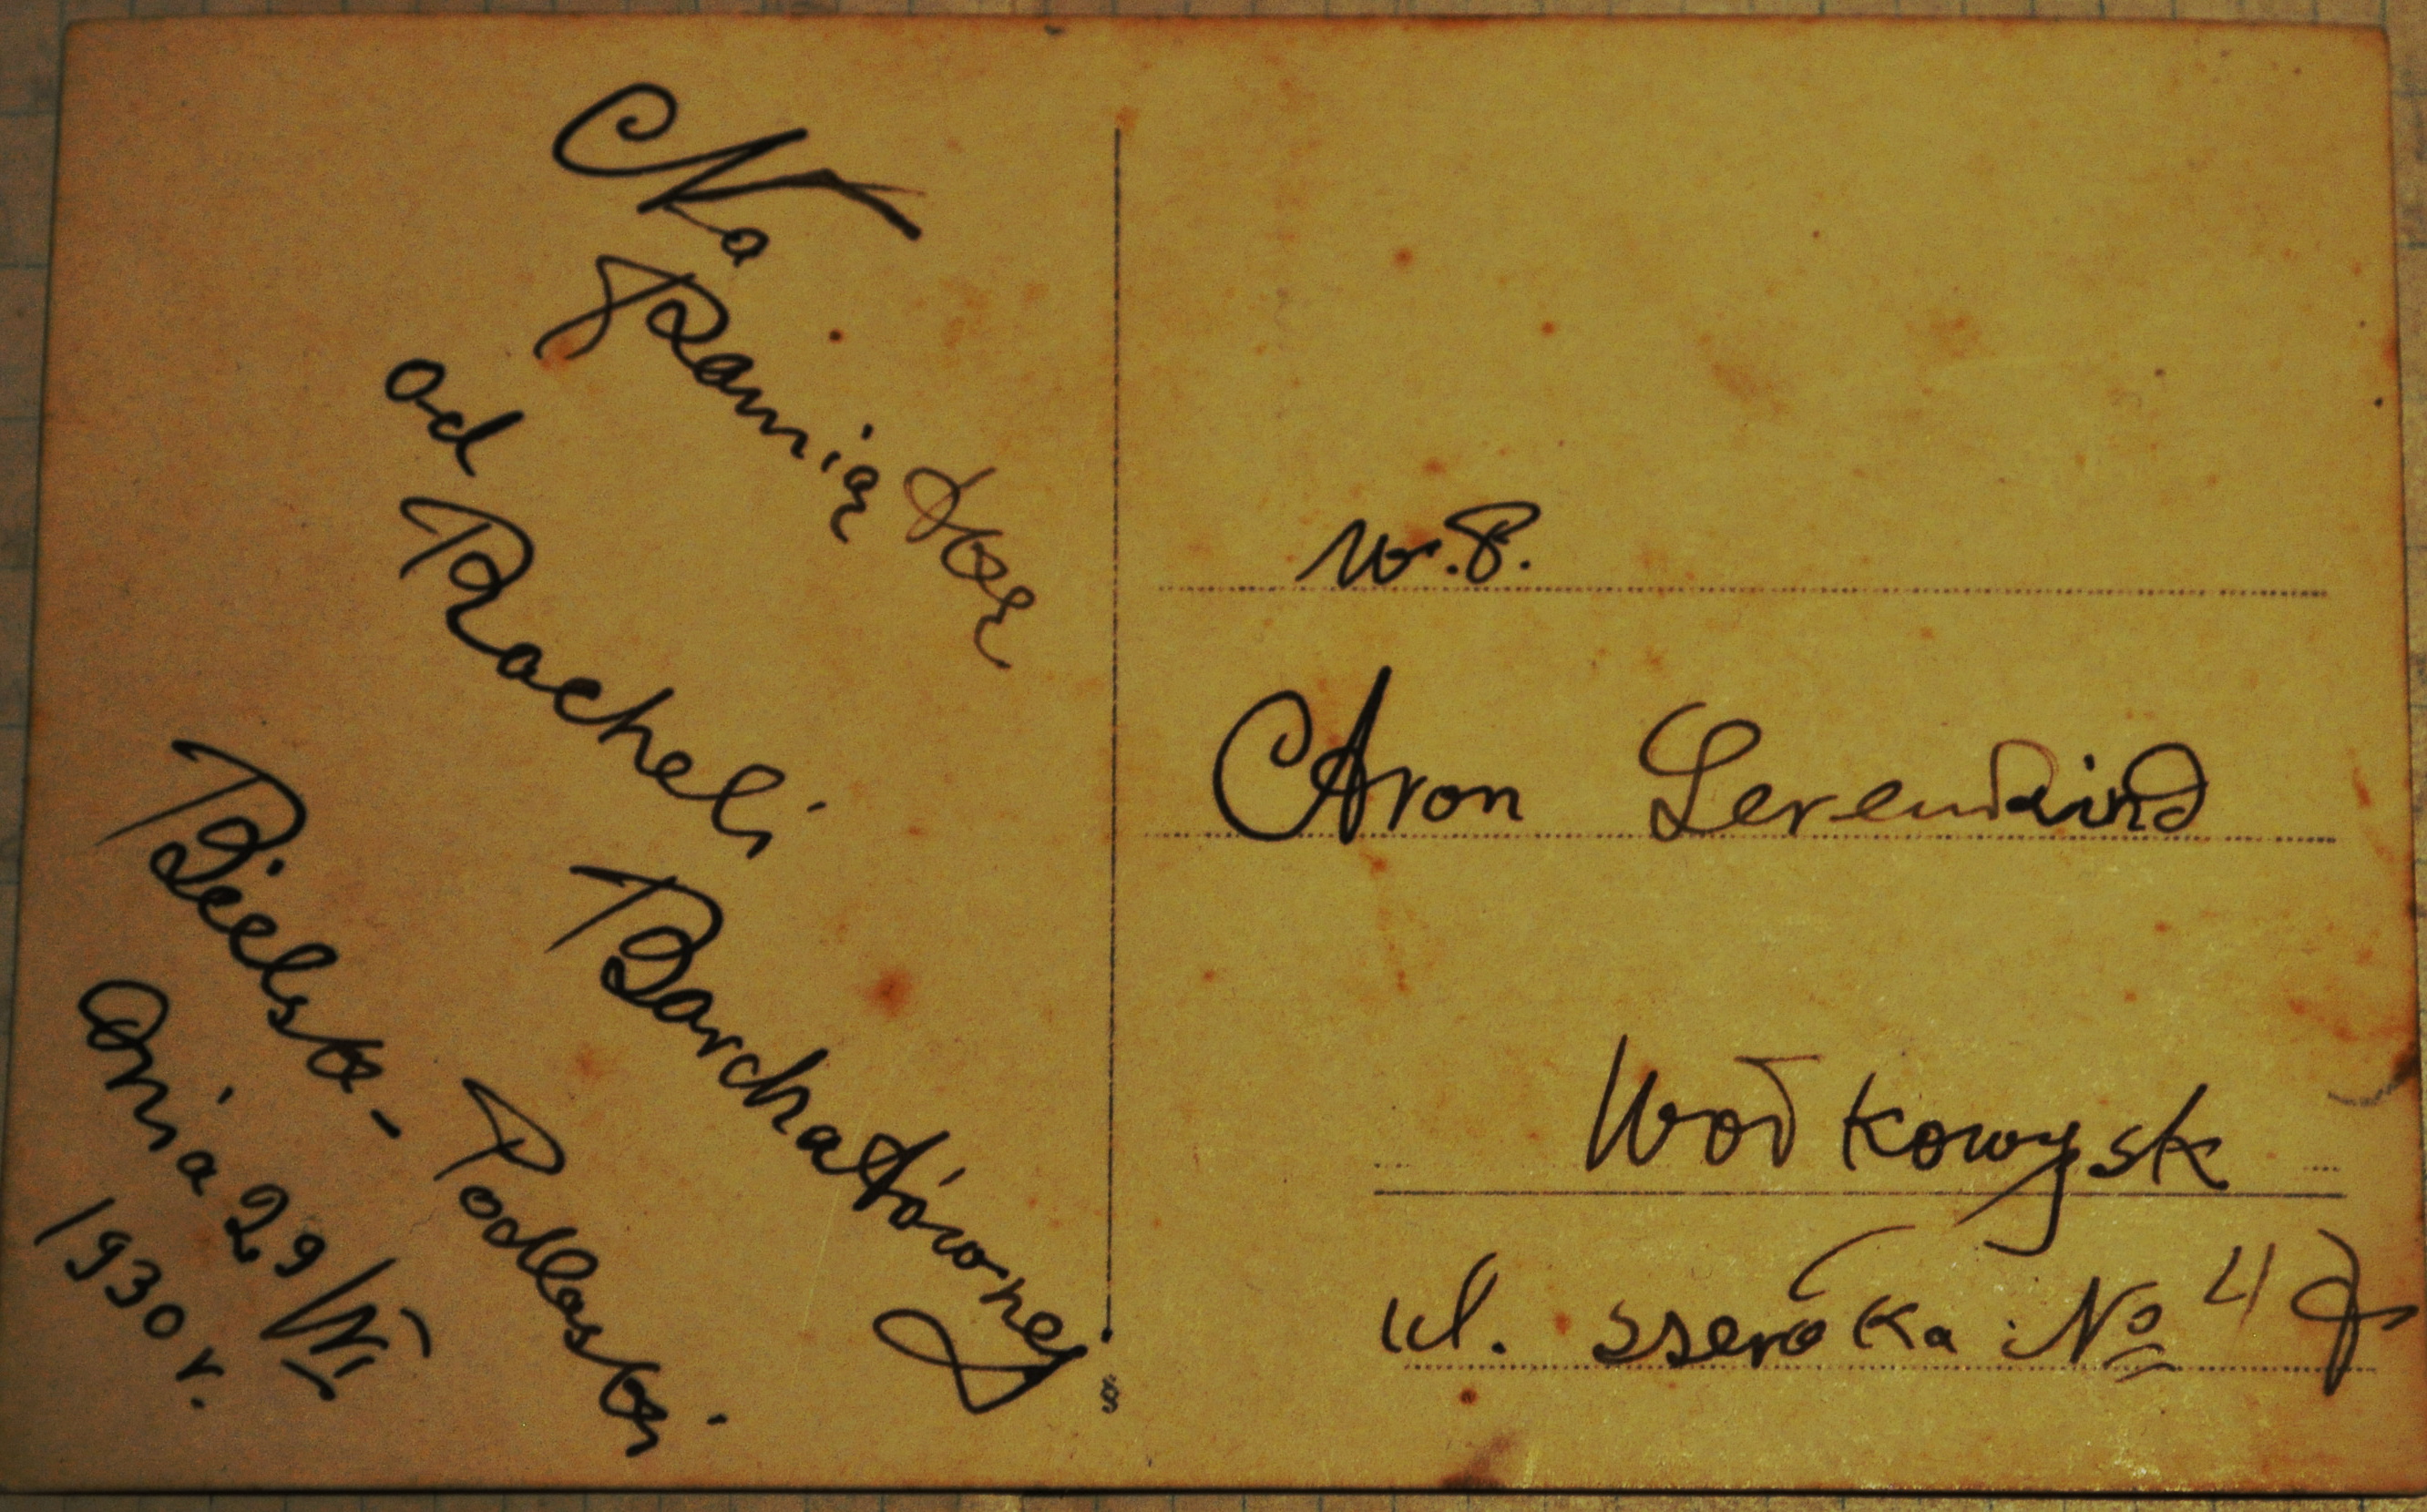 Na
Pamiątkę
od
Racheli
Barchatównej
Bielsk-Podlaski
dnia 29/VI
1930 r.
W.P.
Aron Lerenkind
Wołkowysk
ul. szeroka № 47